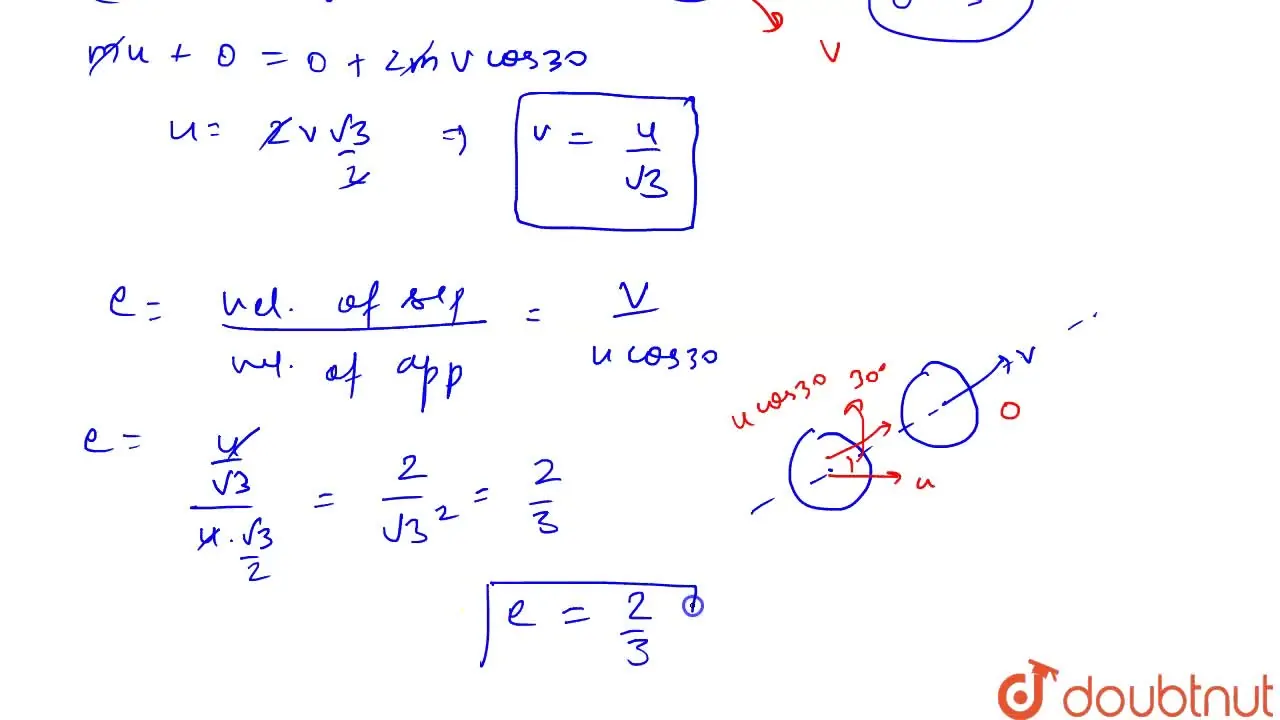 mu + 0 = 0 + 2m v cos30
V
u = 2 v √3/2 ⇒ v = u/√3
e = vel. of sep / vel. of app = V / u cos30
e = u/√3 / u · √3/2 = 2/√3² = 2/3
u cos30 30° v
0
u
e = 2/3
doubtnut